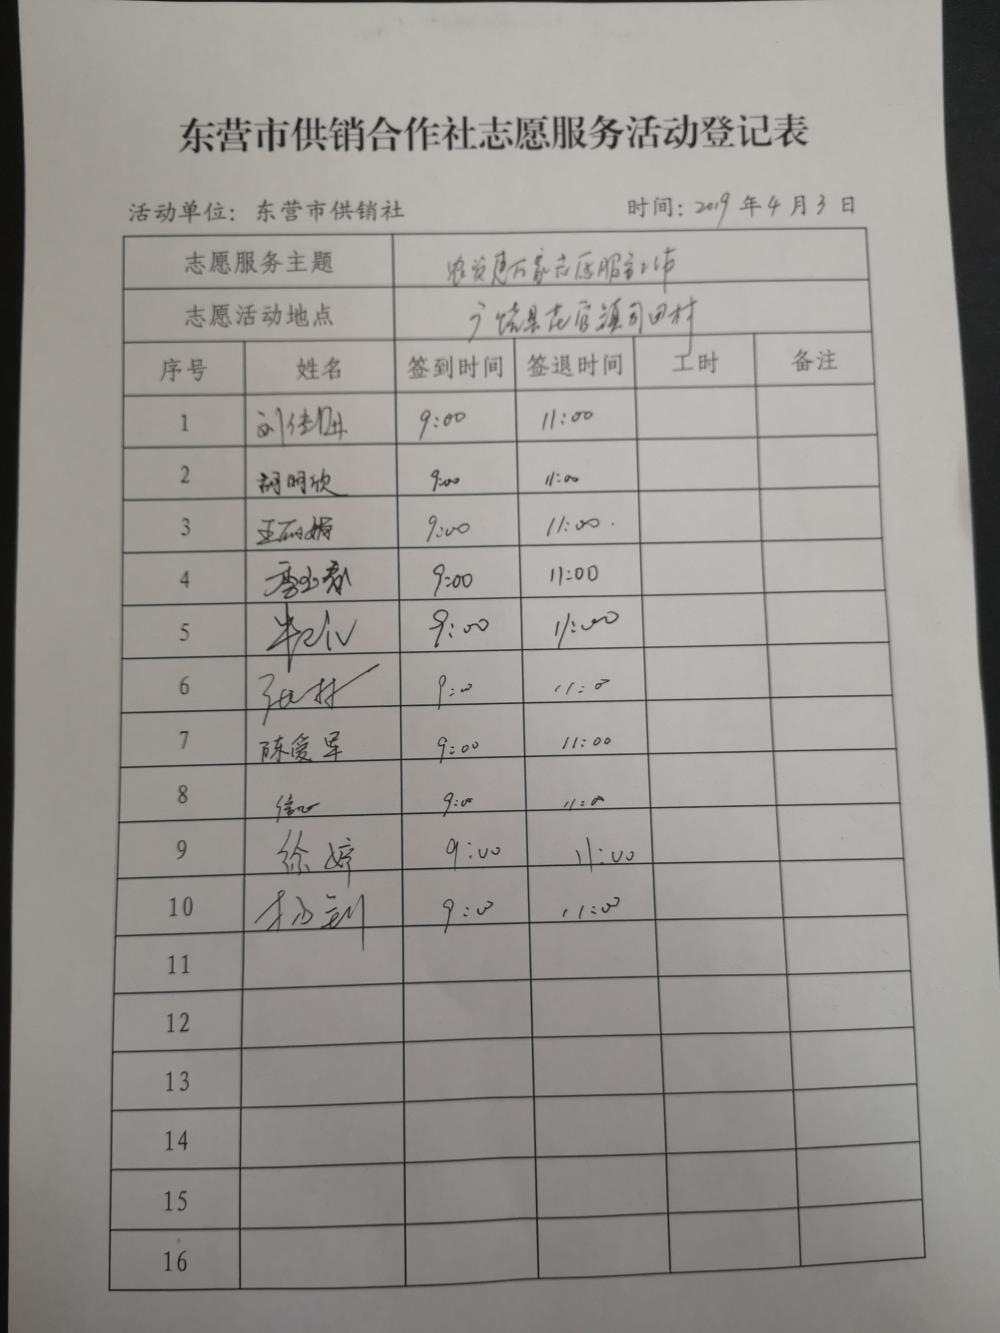 东营市供销合作社志愿服务活动登记表
活动单位：东营市供销社 时间：2019年4月3日
志愿服务主题 志愿服务
志愿活动地点 广饶县花官镇司田村
序号 姓名 签到时间 签退时间 工时 备注
1 刘佳 9:00 11:00
2 胡明欣 9:00 11:00
3 王丽娟 9:00 11:00
4 9:00 11:00
5 9:00 11:00
6 张村 9:00 11:00
7 陈爱军 9:00 11:00
8 9:00 11:00
9 徐婷 9:00 11:00
10 9:00 11:00
11
12
13
14
15
16